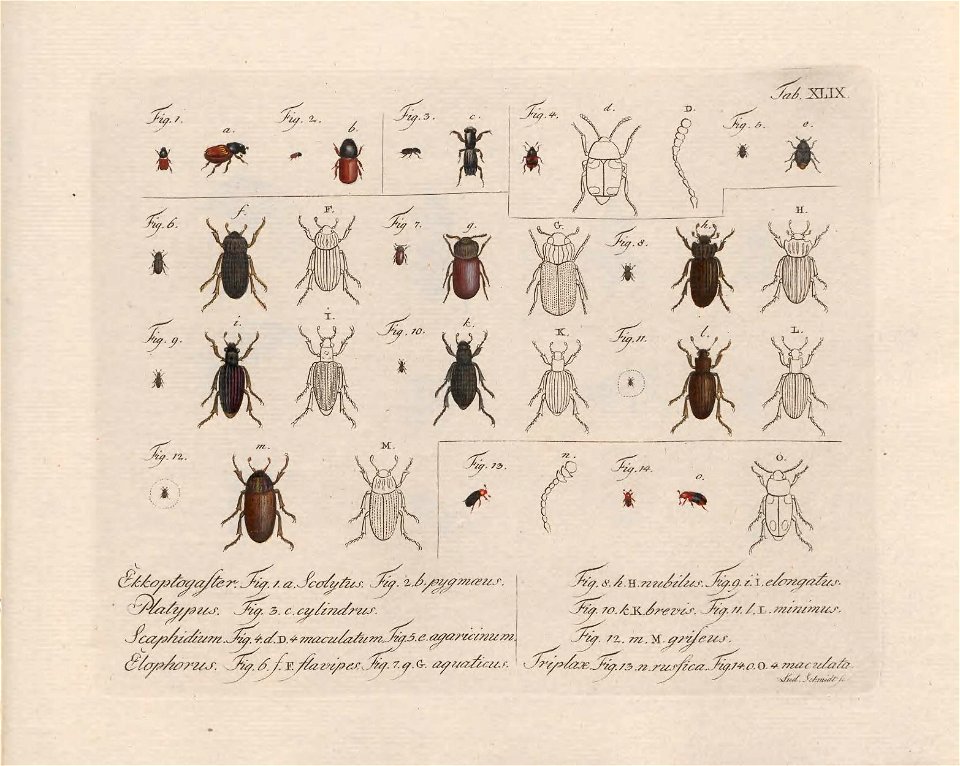 Tab. XLIX.
Fig. 1. Fig. 2. Fig. 3. Fig. 4. d. D. Fig. 5. e.
a. b. c.
Fig. 6. f. F. Fig. 7. g. G. Fig. 8. h. H.
Fig. 9. i. I. Fig. 10. k. K. Fig. 11. l. L.
Fig. 12. m. M. Fig. 13. n. Fig. 14. o. O.
Ekkoptogaſter. Fig. 1. a. Scolytus. Fig. 2. b. pygmæus.
Platypus. Fig. 3. c. cylindrus.
Scaphidium. Fig. 4. d. D. 4 maculatum. Fig. 5. e. agaricinum.
Elophorus. Fig. 6. f. F. flavipes. Fig. 7. g. G. aquaticus.
Fig. 8. h. H. nubilus. Fig. 9. i. I. elongatus.
Fig. 10. k. K. brevis. Fig. 11. l. L. minimus.
Fig. 12. m. M. griſeus.
Triplax. Fig. 13. n. ruſſica. Fig. 14. o. O. 4 maculata.
Lud. Schmidt sc.